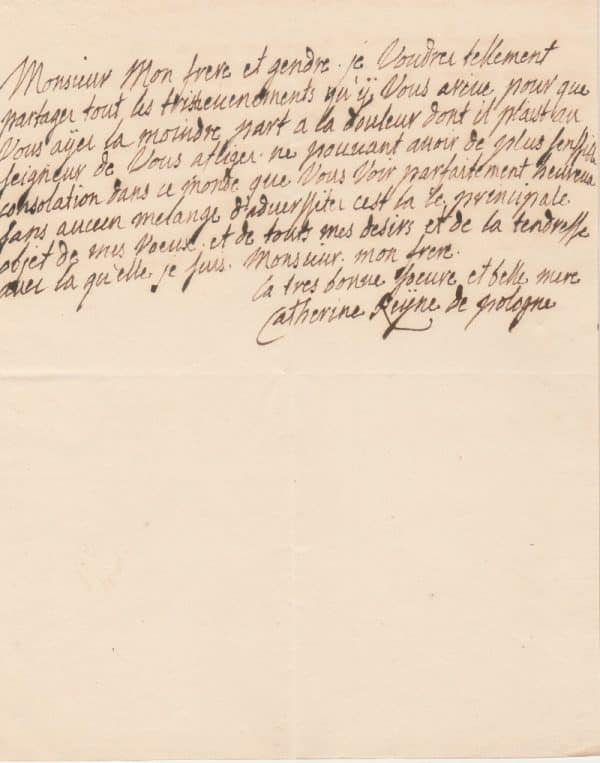 Monsieur Mon frere et gendre. je Voudrei tellement
partager tout les tristeeuenements qu'ÿ Vous ariue pour que
Vous aÿez la moindre part a la douleur dont il plaist au
seigneur de Vous afliger. ne pouuant auoir de plus sensible
consolation dans ce monde que Vous Voir parfaitement heureux
sans aucun melange d'aduerssitez cest la le prencipale
objet de mes Voeux et de touts mes desirs et de la tendresse
auec la qu'elle je suis. Monsieur. mon frere.
La tres bonne soeure et belle mere
Catherine Reÿne de pologne